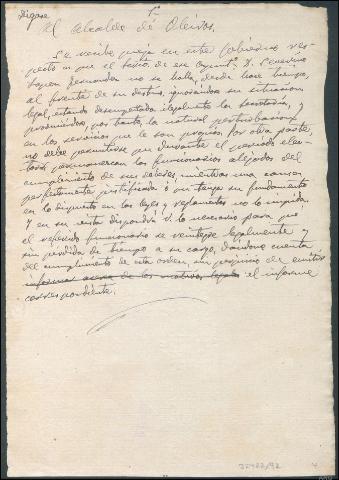 Dígase
Al Alcalde de Oleiros.
Se recibe queja en este Gobierno res-
pecto a que el Secrio. de ese Ayuntº. D.
no se halla, desde hace tiempo,
al frente de su destino, ignorándose su situación
legal, estando desempeñada ilegalmente la Secretaría, y
produciéndose, por tanto, la natural perturbación
en los servicios que le son propios. Por otra parte,
no debe permitirse que durante el periodo elec-
toral permanezcan los funcionarios alejados del
cumplimiento de sus deberes, mientras una causa
perfectamente justificada o que tenga su fundamento
en lo dispuesto en las leyes y reglamentos no lo impida.
Y en su vista dispondrá V. lo necesario para que
el referido funcionario se reintegre legalmente y
sin pérdida de tiempo a su cargo, dándome cuenta
del cumplimiento de esta orden, sin perjuicio de emitir
informe acerca de los motivos el informe
correspondiente.
4